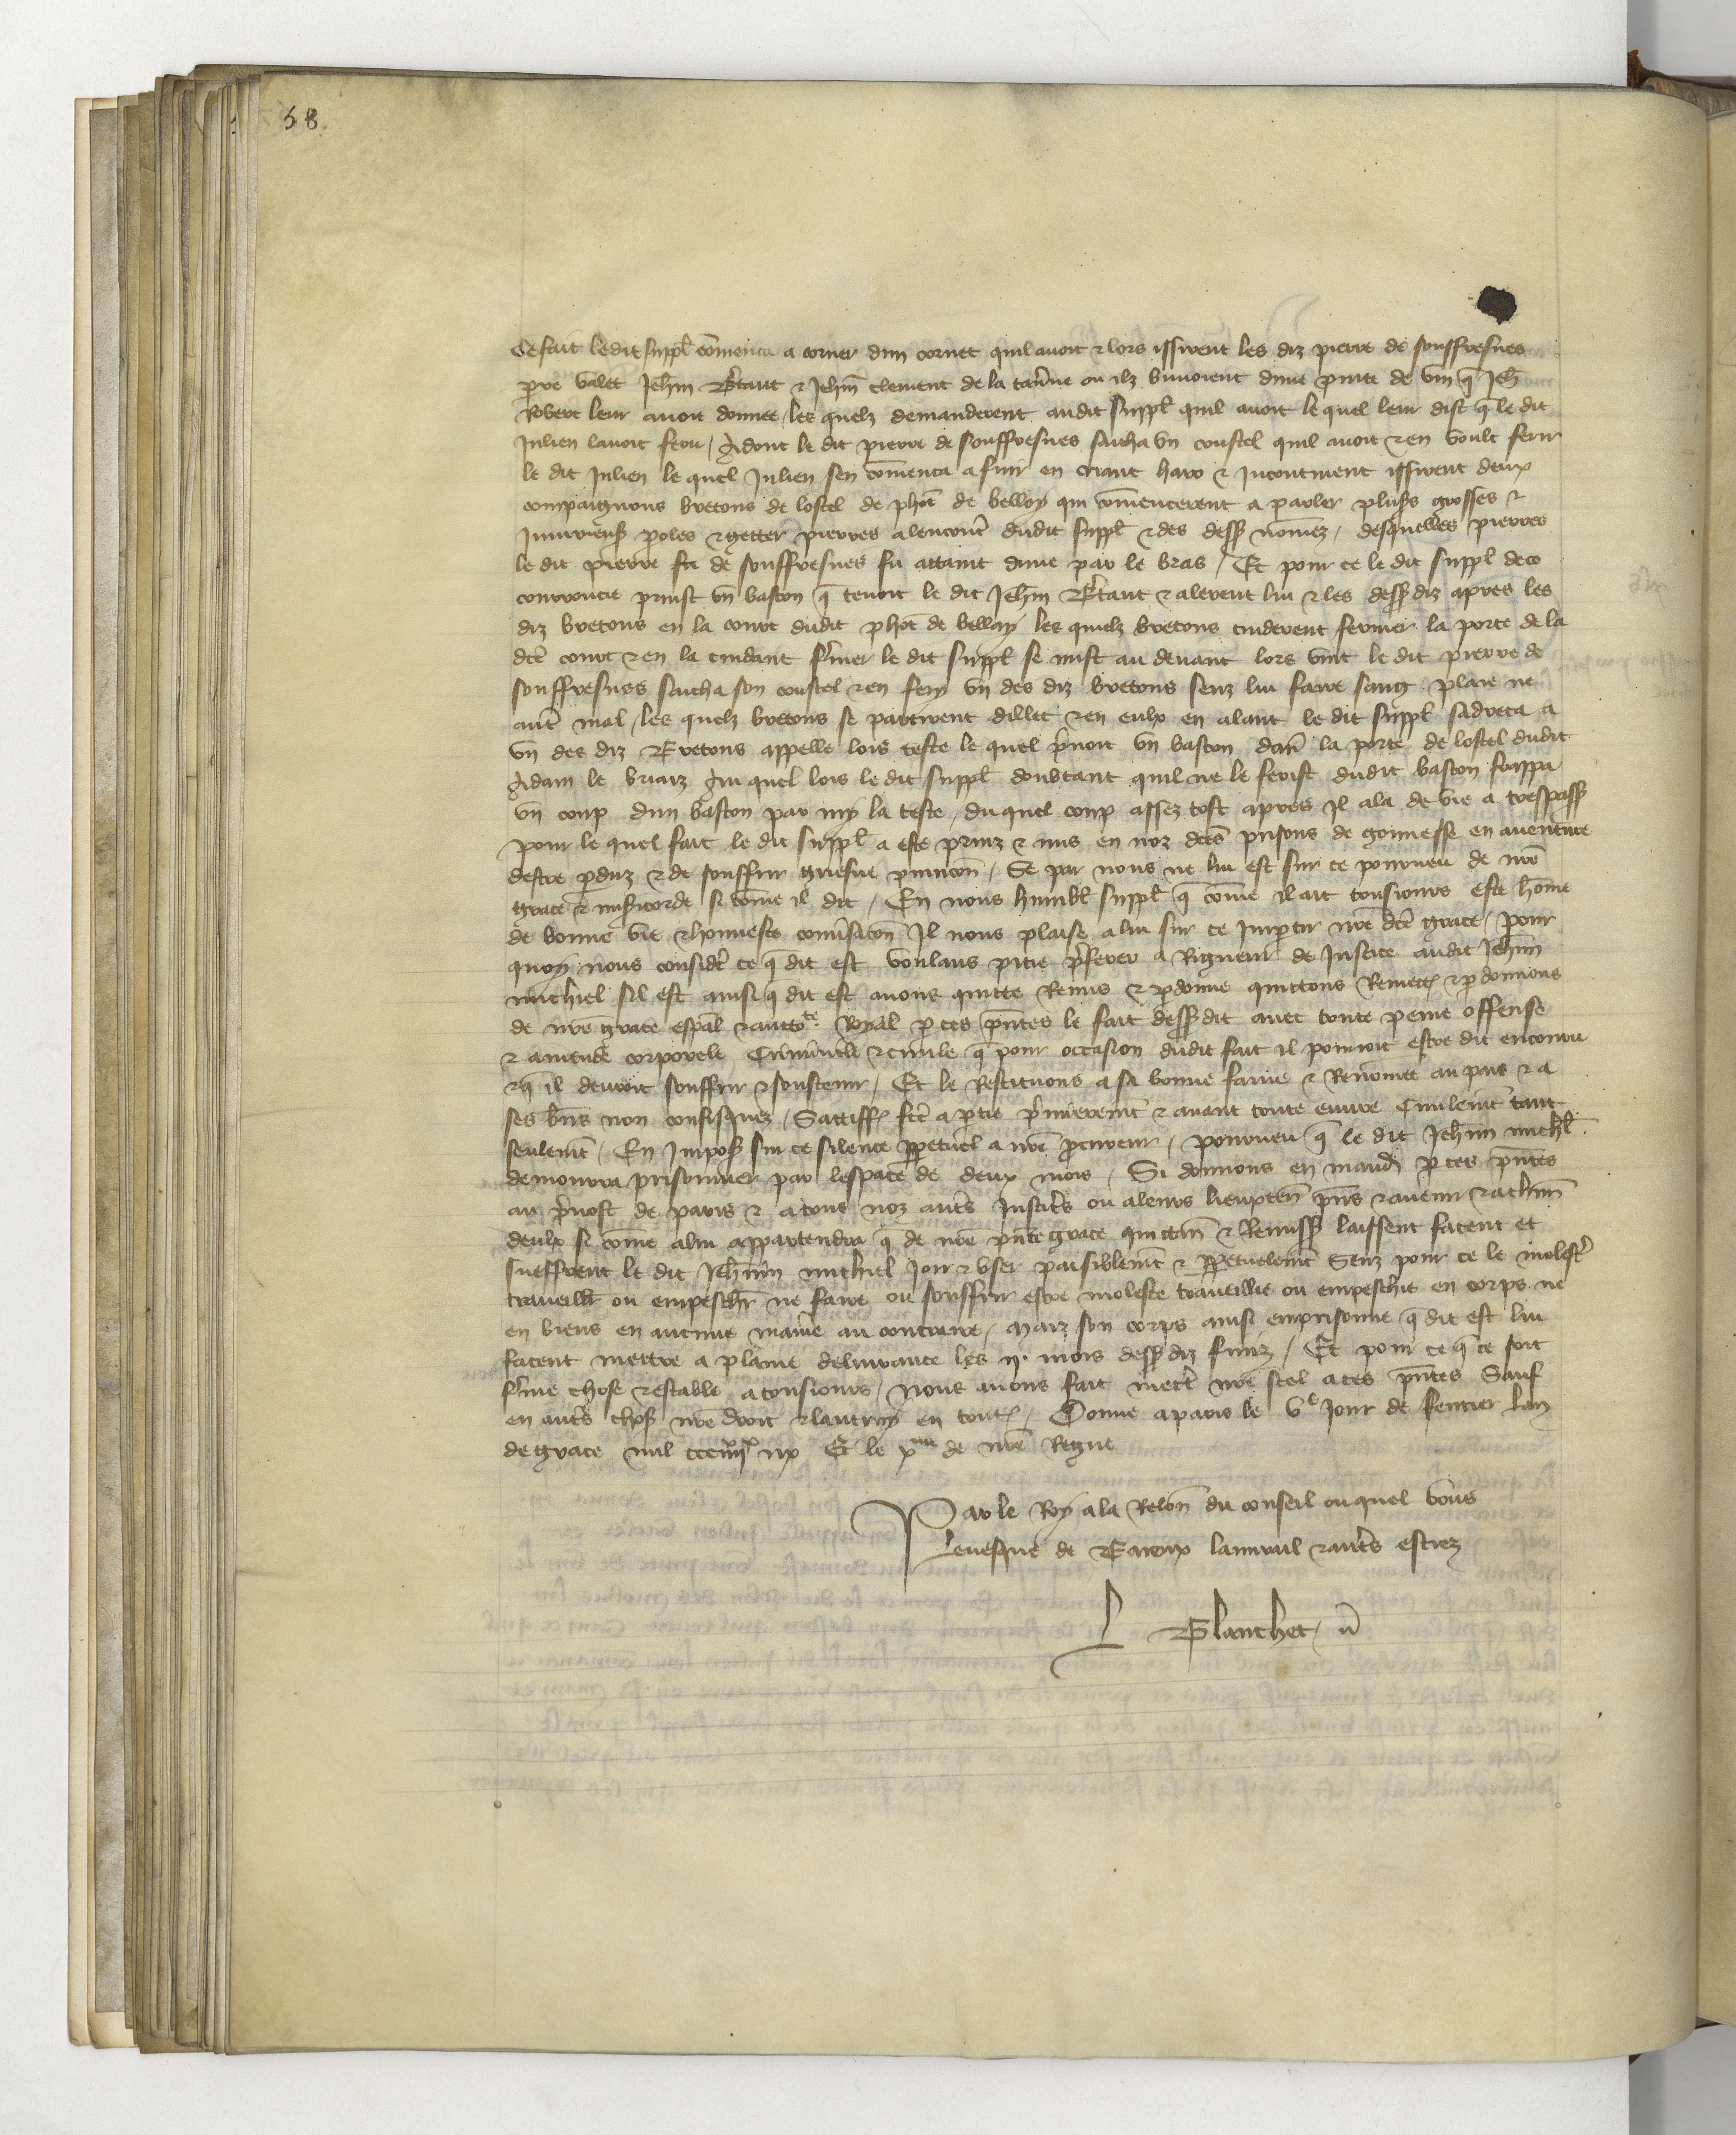 58
Ce fait ledit suppl̄ com̄enca a corner dun cornet quil avoit & lors issirent les diz pierre de souffresnes
pre valet Jeh̄m B̄taut & Jeh̄m clement de la tav̄ne ou ilz buvoient dune pinte de vin q̄ Jeh̄
Robert leur avoit donnee / les quelz demanderent audit suppl̄ quil avoit le quel leur dist q̄ le dit
Julien lavoit feru / Adont le dit pierre de souffresnes sacha un coustel quil avoit & en voult ferir
le dit Julien le quel Julien sen com̄enca a fuir en criant haro & Incontinent issirent deux
compaignons bretons de lostel de ph̄ot de belloy qui com̄encerent a parler plus̄s grosses &
Iniurieus̄ p̄oles & getter̄ pierres alencont̄ dudit suppl̄ & des dess̄ nom̄ez / desquelles pierres
le dit pierre fu de souffresnes fu attaint dune par le bras / Et pour ce le dit suppl̄ de ce
courroucie prinst un baston q̄ tenoit le dit Jeh̄m B̄taut & alerent lui & les dess̄ diz apres les
diz bretons en la court dudit ph̄ot de belloy les quielz bretons cuiderent fermer la porte de la
dc̄e court & en la cuidant f̄mer le dit suppl̄ se mist au devant lors vint le dit pierre de
souffresnes sacha son coustel & en fery un des diz bretons senz lui faire sang plaie ne
aut̄ mal / les quelz bretons se partirent dillec & en eulx en alant le dit suppl̄ sadreca a
un des diz Bretons appelle lois teste le quel p̄noit un baston dev̄ la porte de lostel dudit
Adam le briaiz Au quel lois le dit suppl̄ doubtant quil ne le ferist dudit baston frappa
un coup dun baston par my la teste / du quel coup assez tost apres Il ala de vie a trespass̄
pour le quel fait le dit suppl̄ a este prinz & mis en noz dc̄es prisons de gonnesse en aventure
destre p̄duz & de souffrir griefve punicōn / Se par nous ne lui est sur ce pourveu de nr̄e
grace & mis̄icorde si com̄e il dit / En nous humbl̄ suppl̄ q̄ com̄e il ait tousiours este hom̄e
de bonne vie & honneste conv̄sacōn Il nous plaise a lui sur ce Imp̄tir nr̄e dc̄e grace / pour
quoy nous considēr ce q̄ dit est voulans pitie p̄ferer a Rigueur de Justice audit Jeh̄m
michiel sil est ainsi q̄ dit est avons quitte Remis & p̄donne quittons Remett̄ & p̄donnons
de nr̄e grace esp̄al & aucto.te Royal p̄ ces p̄ntes le fait dess̄ dit avec toute peine offense
& amende corporele Criminele & civile q̄ pour occasion dudit fait il pourroit estre dit encouru
& q̄ il devroit souffrir & soustenir / Et le Restituons a sa bonne fame & Renom̄ee au pais & a
ses bn̄s non confisquez / Sattiff̄ fc̄e a p̄tie p̄mierem̄t & avant toute euvre Civilem̄t tant
seulem̄t / En Impos̄ sur ce silence p̄petuel a nr̄e p̄cureur / pourveu q̄ le dit Jeh̄m michl̄
demourra prisonnier par lespace de deux mois / Si donnons en mand̄ p̄ ces p̄ntes
au p̄vost de paris & a touz noz aut̄s Justic̄s ou a leurs lieuxten̄ p̄ns & avenir & a ch̄un
deulx si com̄e a lui appartendra q̄ de nr̄e p̄nte grace quittan̄ & Remiss̄ laissent facent et
sueffrent le dit Jeh̄m michiel Joir & user paisiblem̄t & p̄petuelem̄t Senz pour ce le molest̄
traveill̄r ou empesch̄r ne faire ou souffrir estre moleste traveillie ou empeschie en corps ne
en biens en aucune manie au contraire / maiz son corps ainsi emprisonne q̄ dit est lui
facent mettre a plaine delivrance les ij. mois dess̄ diz finiz / Et pour ce q̄ ce soit
f̄me chose & estable a tousiours / Nous avons fait mett̄ nr̄e scel a ces p̄ntes Sauf
en aut̄s chos̄ nr̄e droit & lautruy en tout̄ / Donne a paris le Ve Jour de fevrier lan
de grace mil ccc iiijxx ix Et le xme de nr̄e Regne
Par le Roy a la Relōn du conseil ou quel vous
Levesque de Baieux lamiral & aut̄s estiez
L Blanchet